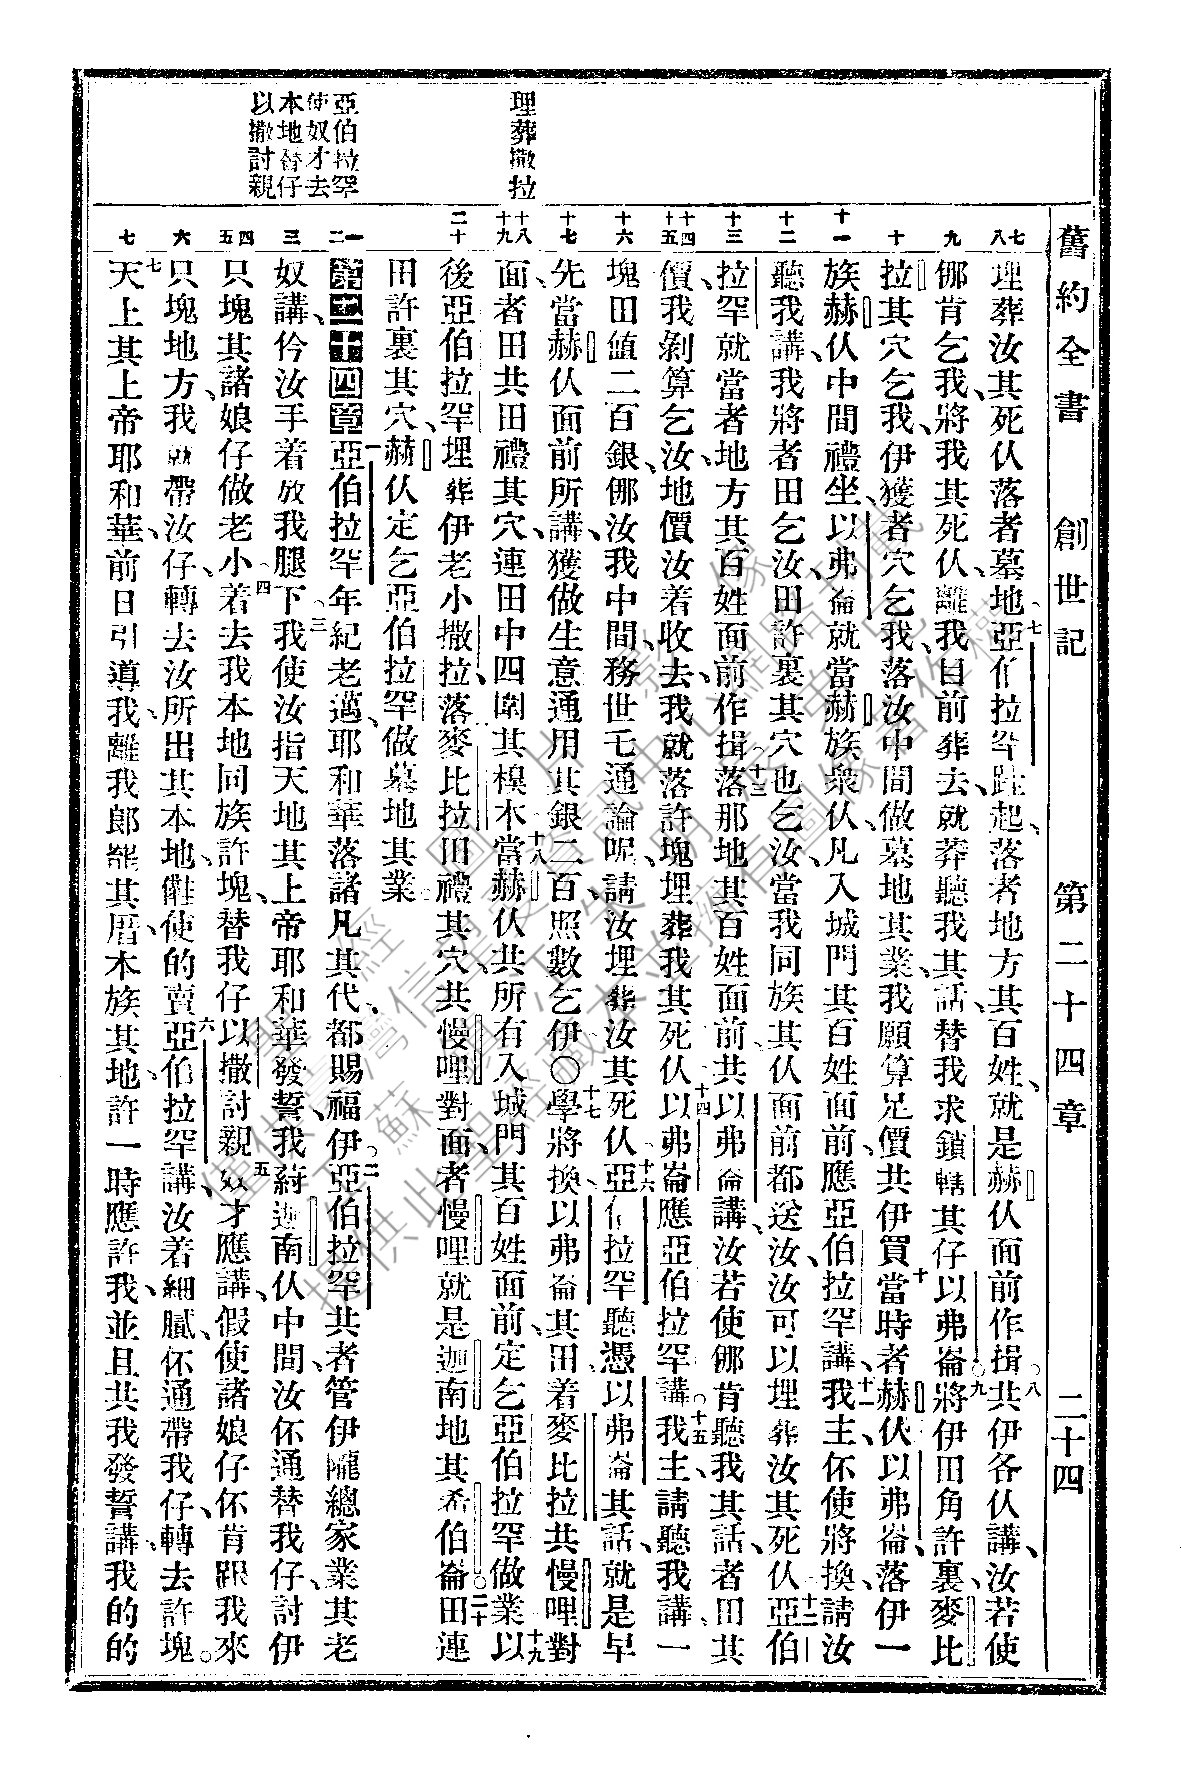 舊約全書 創世記 第二十四章 二十四
埋葬撒拉
亞伯拉罕
使奴才去
本地替仔
以撒討親
七 八 九 十 十一 十二 十三 十四 十五 十六 十七 十八 十九 二十 一 二 三 四 五 六 七
埋葬汝其死仈落者墓地、七亞伯拉罕跍起、落者地方其百姓、就是赫仈面前作揖。八共伊各仈講、汝若使
㑚肯乞我、將我其死仈、離我目前葬去、就葬聽我其話、替我求鎖轄其仔以弗崙、九將伊田角許裏、麥比
拉其穴乞我、伊獲者穴乞我、落汝中間做墓地其業、我願算足價共伊買、十當時者赫仈以弗崙、落伊一
族赫仈中間禮坐、以弗崙就當赫族衆仈、凡入城門其百姓面前、應亞伯拉罕講、十一我主、伓使將換、請汝
聽我講、我將者田乞汝、田許裏其穴也乞汝、當我同族其仈面前都送汝、汝可以埋葬汝其死仈、十二亞伯
拉罕就當者地方其百姓面前作揖、十三落那地其百姓面前、共以弗崙講、汝若使㑚肯聽我其話、者田其
價、我剝算乞汝、地價汝着收去、我就落許塊埋葬我其死仈、十四以弗崙應亞伯拉罕講。十五我主、請聽我講、一
塊田値二百銀、㑚汝我中間、務世乇通論呢、請汝埋葬汝其死仈、十六亞伯拉罕聽憑以弗崙其話、就是早
先當赫仈面前所講、獲做生意通用其銀二百、照數乞伊〇十七學將換以弗崙其田、着麥比拉共慢哩對
面、者田共田禮其穴、連田中四圍其樹木、十八當赫仈共所有入城門其百姓面前、定乞亞伯拉罕做業、十九以
後亞伯拉罕埋葬伊老小撒拉落麥比拉田禮其穴、共慢哩對面、者慢哩就是迦南地其希伯崙。二十田連
田許裏其穴、赫仈定乞亞伯拉罕做墓地其業
第二十四章一亞伯拉罕年紀老邁、耶和華落諸凡其代、都賜福伊。二亞伯拉罕共者管伊隴總家業其老
奴講、仱汝手着放我腿下、三我使汝指天地其上帝耶和華發誓、我紟迦南仈中間、汝伓通替我仔、討伊
只塊其諸娘仔做老小、四着去我本地同族許塊、替我仔以撒討親、五奴才應講、假使諸娘仔伓肯跟我來
只塊地方、我就帶汝仔、轉去汝所出其本地、㑚使的賣、六亞伯拉罕講、汝着細膩、伓通帶我仔、轉去許塊。
七天上其上帝耶和華、前日引導我、離我郎罷其厝、本族其地、許一時應許我、並且共我發誓講、我的的